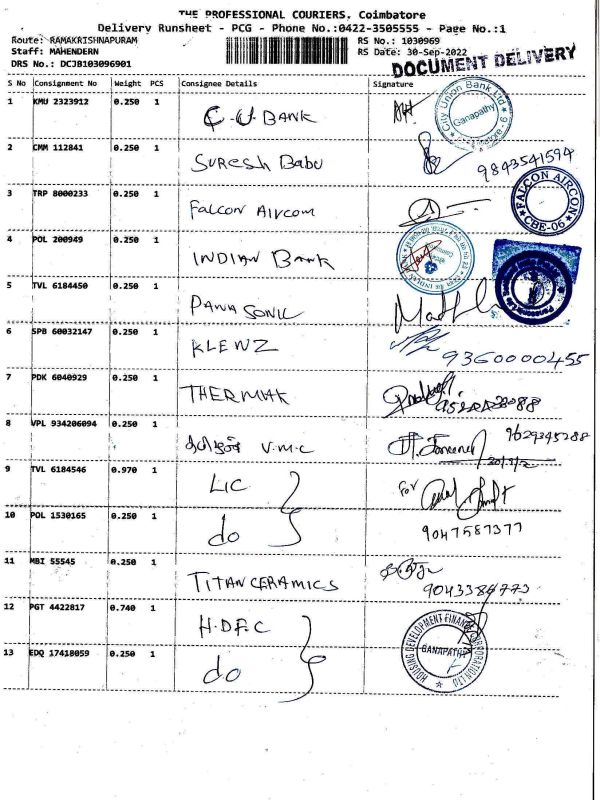 THE PROFESSIONAL COURIERS, Coimbatore
Delivery Runsheet - PCG - Phone No.:0422-3505555 - Page No.:1
Route: RAMAKRISHNAPURAM RS No.: 1030969
Staff: MAHENDERN RS Date: 30-Sep-2022
DRS No.: DCJB103096901 DOCUMENT DELIVERY
S No Consignment No Weight PCS Consignee Details Signature
1 KMU 2323912 0.250 1 C.U.BANK
City Union Bank Ltd Ganapathy
2 CMM 112841 0.250 1 Suresh Babu 9843541594
3 TRP 8000233 0.250 1 Falcon Aircom
FALCON AIRCON CBE-06
4 POL 200949 0.250 1 INDIAN BANK
5 TVL 6184450 0.250 1 PANASONIC
6 SPB 60032147 0.250 1 KLENZ 9360000455
7 PDK 6040929 0.250 1 THERMAX
8 VPL 934206094 0.250 1 V.M.C 9629345288
9 TVL 6184546 0.970 1 LIC For
10 POL 1530165 0.250 1 do 9047587377
11 MBI 55545 0.250 1 TITAN CERAMICS 9043384773
12 PGT 4422817 0.740 1 H.D.F.C
HOUSING DEVELOPMENT FINANCE CORPORATION LTD GANAPATHY
13 EDQ 17418059 0.250 1 do